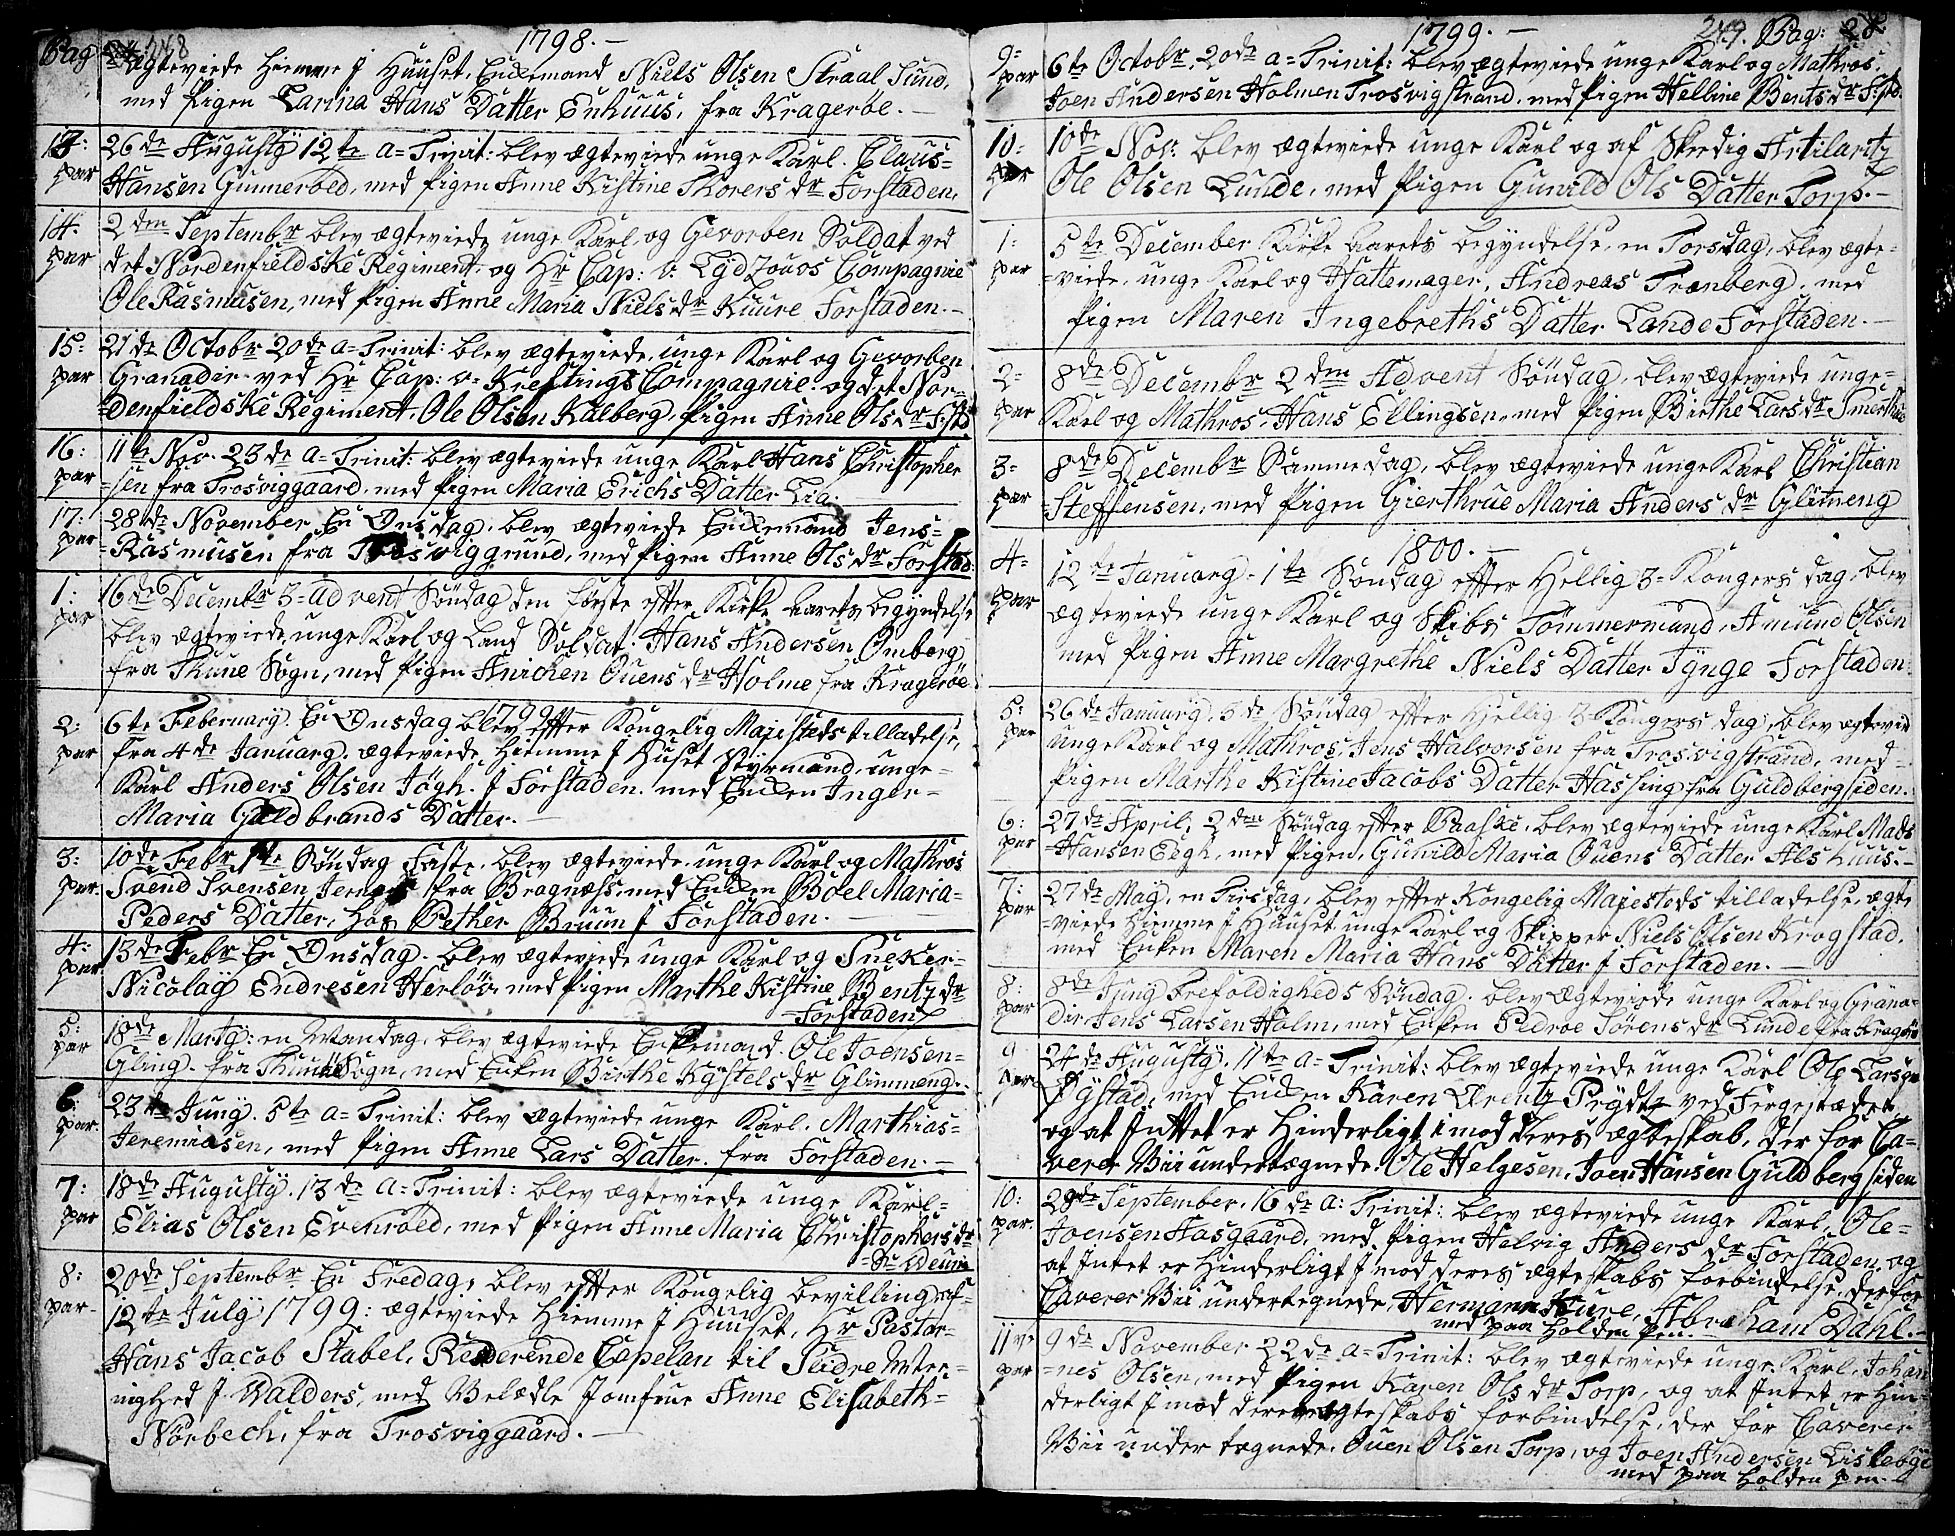 Pag 248
1798. —
ægteviede Hiemme J Huuset, Enkemand Niels Olsen Straal Sund,
med Pigen Larina Hans Datter Enhuus, fra Kragerøe. —
13:
par
26de Augustÿ 12te a= Trinit: blev ægteviede unge Karl. Claus=
Hansen Gunnerbed, med Pigen Anne Kistine Thorers dr Forstaden,
14:
par
2den Septembr blev ægteviede unge Karl, og Gevorben Soldat ved
det Nordenfieldske Regiment, og Hr Cap: v: Lydzouvs Compagnie
Ole Rasmusen, med Pigen Anne Maria Niels dr Kuure Forstaden. —
15:
par
21de Octobr 20de a= Trinit: blev ægteviede, unge Karl og Gevorben
Granadir ved Hr Cap: v= Kreftings Compagnie og det Nor=
=denfieldske Regiment, Ole Olsen Kalberg, Pigen Anne Ols dr F:std
16:
par
11te Nov. 23de a= Trinit: blev ægteviede unge Karl Hans Christopher
=sen fra Trosviggaard, med Pigen Maria Erichs Datter Lia.
17:
par
28de November En Onsdag, blev ægteviede Enkemand Jens=
=Rasmusen fra Trosviggrund, med Pigen Anne Ols dr Forstad.
1:
par
16de Decembr 3= Advent Søndag den første efter Kirke Aarets begyndelse
blev ægteviede unge Karl og Land Soldat. Hans Andersen Omberg
fra Thune Sogn, med Pigen Anichen Ouens dr Holme fra Kragerøe
1799
2:
par
6te Februarÿ. En Onsdag blev efter Kongelig Majesteds tilladelse,
fra 4de Januarÿ. ægteviede Hiemme J Huset Styrmand, unge=
Karl Anders Olsen Jøgh. J Forstaden. med Enken Inger=
Maria Guldbrands Datter. —
3:
par
10de Febr 1te Søndag Faste. blev ægteviede unge Karl og Mathros
Svend Svensen fra Bragnæss, med Enken Boel Maria=
Peders Datter, Hos Pether Bruun J Forstaden.
4:
par
13de Febr En Onsdag. blev ægteviede unge Karl og Sneker=
Nicolaÿ Endresen Herløv. med Pigen Marthe Kistine Bentz dr
=Forstaden
5:
par
18de Martÿ: en Mandag, blev ægteviede Enkemand. Ole Joensen=
Gling. fra Thune Sogn, med Enken Birthe Kÿstels dr Glimmeng.
6:
par.
23de Junÿ. 5te a= Trinit: blev ægteviede unge Karl. Marthias=
Jeremiasen, med Pigen Anne Lars Datter. fra Forstaden. —
7:
par
18de Augustÿ. 13de a= Trinit: blev ægteviede unge Karl=
Elias Olsen Evenrøed, med Pigen Anne Maria Christophers dr
8:
par-
20de Septembr En Fredag, blev efter Kongelig bevilling af=
12te Julÿ 1799: ægteviede Hiemme J Huuset, Hr Pastor=
Hans Jacob Stabel, Residerende Capelan til Slidre Mee=
nighed J Walders, med Velædle Jomfrue Anne Elisabeth=
Nørbech, fra Trosviggaard. —
1799. —
249. Pag:
9:
par
6te Octobr. 20de a= Trinit: blev ægteviede unge Karl og Mathros,
Joen Andersen Holmen Trosvigstrand, med Pigen Helbine Bents dr F:std.
10:
par
10de Nov: blev ægteviede unge Karl og af Skedig Artilaritz
Ole Olsen Lunde, med Pigen Gunild Ols Datter Torp. —
1:
par
5te December Kirke Aarets begyndelse, en Torsdag, blev ægte=
=viede, unge Karl og Hattemager, Andreas Trønberg, med
Pigen Maren Ingebreths Datter Lande Forstaden. —
2:
par
8de Decembr 2den Advent Søndag, blev ægteviede unge=
Karl og Mathros, Hans Ellingsen, med Pigen Birthe Lars dr
3=
par
8de Decembr Sammedag, blev ægteviede unge Karl Christian
=Steffensen, med Pigen Gierthrue Maria Anders dr Glimeng
1800. —
4=
par
12te Januarÿ. 1te Søndag efter Hellig 3= Kongers dag, blev
ægteviede unge Karl og Skibs Tømmermand, Amund Olsen
med Pigen Anne Margrethe Niels Datter Tÿnge Forstaden:
5:
par
26de Januarÿ. 3de Søndag efter Hellig 3= Kongers dag, blev ægtevied
unge Karl og Mathros, Jens Halvorsen fra Trosvigstrand, med=
Pigen Marthe Kistine Jacobs Datter Hassing fra Guldbergsiden.
6:
par
27de April, 2den Søndag efter Paaske, blev ægteviede unge Karl Mads
=Hansen Eegh, med Pigen, Gunild Maria Ouens Datter Alshuus. —
7:
par
27de Maÿ, en Tirsdag, blev efter Kongelig Majesteds tilladelse, ægte
=viede Hiemme J Huuset unge Karl og Skipper Niels Olsen Krogstad.
med Enken Maren Maria Hans Datter J Forstaden. —
8:
par
8de Junÿ Trefoldigheds Søndag. blev ægteviede unge Karl og Grana=
dir Jens Larsen Holm, med Enken Pedroe Sørens dr Lunde fra Kragerøe
9
par.
24de Augustÿ. 11te a= Trinit: blev ægteviede unge Karl Ole Larsen
Øÿstad, med Enken Karen Ærentz Prÿdtz ved Fergestædet,
og at Intet er Hinderligt imod deres ægteskab, der for Ca=
verer Vii undertegnede. Ole Helgesen, Joen Hansen Guldbergsiden
10:
par.
28de September. 16de a: Trinit: blev ægteviede unge Karl, Ole=
Joensen Aasgaard, med Pigen Helvig Anders dr Forstaden. og
at Intet er Hinderligt J mod deres ægteskabs forbindelse, derfor
Caverer Vii undertegnede, Hermann Kure, Abraham Dahl. —
med paa Holden pen.
11ve
par
9de November 22de a= Trinit: blev ægteviede unge Karl, Johan
=nes Olsen, med Pigen Karen Ols dr Torp, og at Intet er Hin=
derligt J mod deres ægteskabs forbindelse, der for Caverer
Vii under tegnede, Ouen Olsen Torp, og Joen Andersen Liskebÿe
med paa Holden pen.